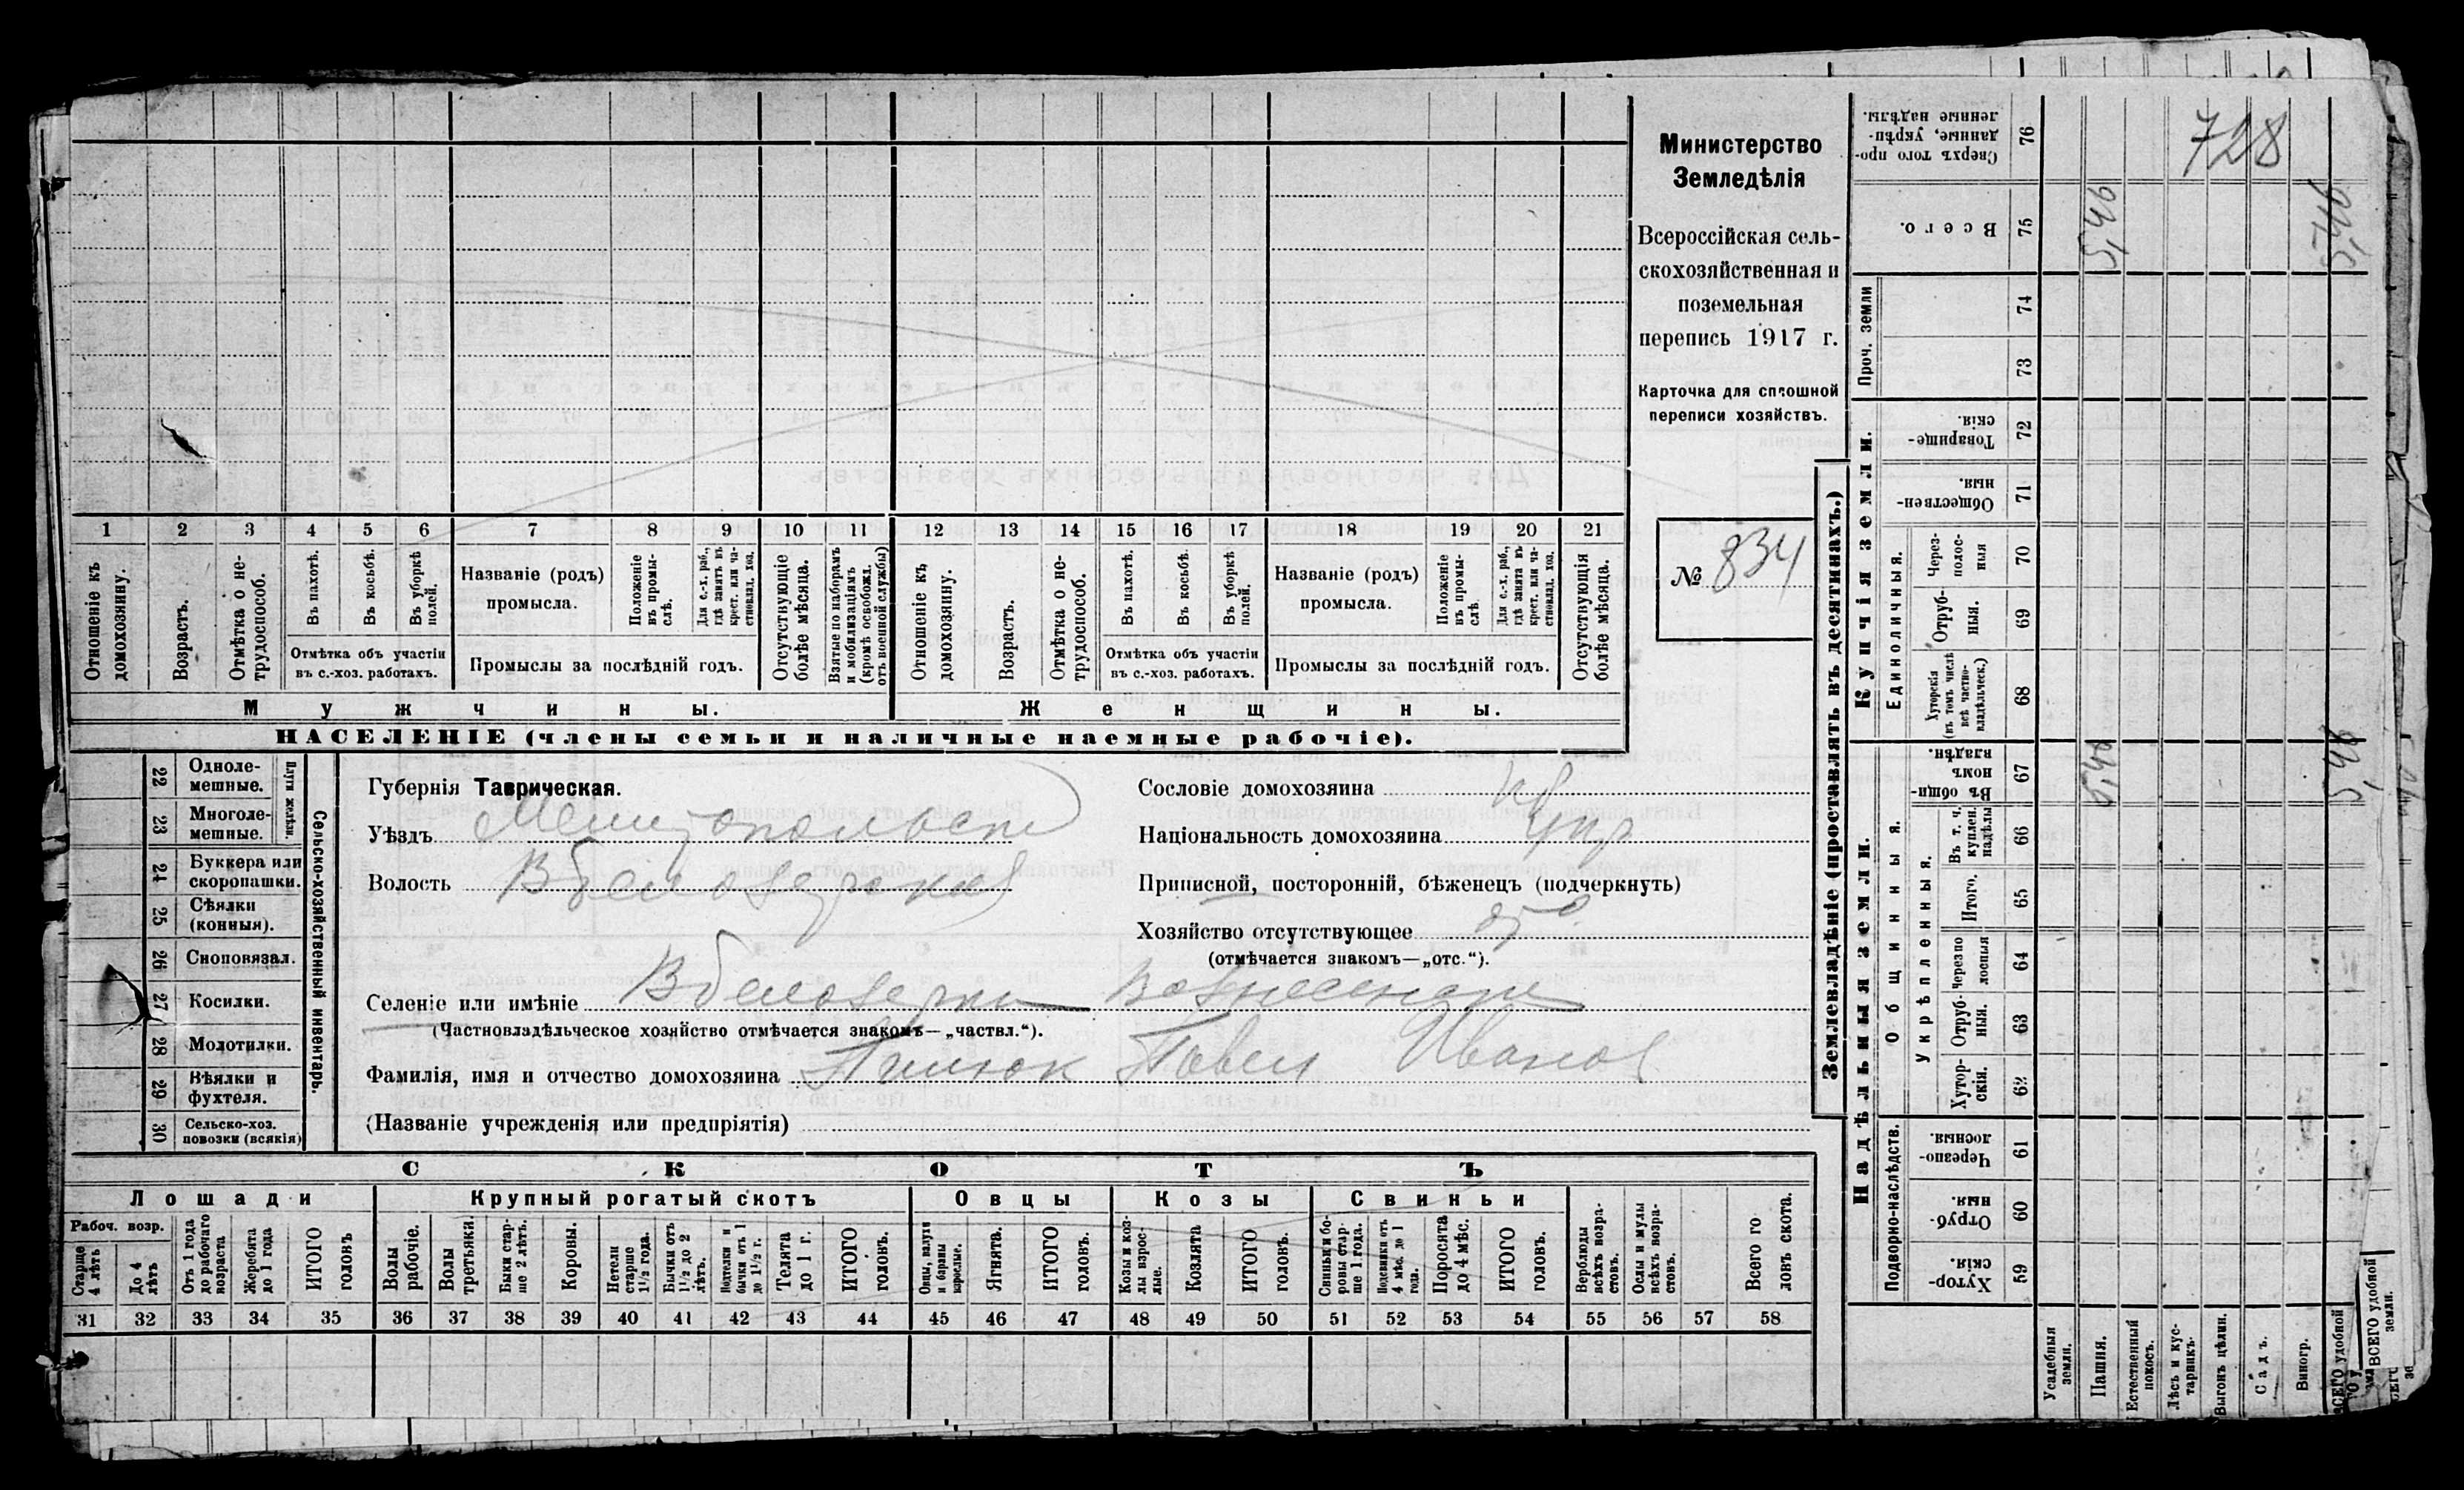 1 2 3 4 5 6 7 8 9 10 11 12 13 14 15 16 17 18 19 20 21
Отношеніе къ домохозяину.
Возрастъ.
Отмѣтка о не-
трудоспособ.
Въ пахотѣ.
Въ косьбѣ.
Въ уборкѣ
полей.
Отмѣтка объ участіи
въ с.-хоз. работахъ.
Названіе (родъ)
промысла.
Положеніе
въ промы-
слѣ.
Для с.-х. раб.,
гдѣ занятъ въ
крест. или ча-
стновлад. хоз.
Промыслы за послѣдній годъ.
Отсутствующіе
болѣе мѣсяца.
Взятые по наборамъ
и мобилизаціямъ
(кромѣ освобожд.
отъ военной службы)
Отношеніе къ
домохозяину.
Возрастъ.
Отмѣтка о не-
трудоспособ.
Въ пахотѣ.
Въ косьбѣ.
Въ уборкѣ
полей.
Отмѣтка объ участіи
въ с.-хоз. работахъ.
Названіе (родъ)
промысла.
Положеніе
въ промы-
слѣ.
Для с.-х. раб.,
гдѣ занята въ
крест. или ча-
стновлад. хоз.
Промыслы за послѣдній годъ.
Отсутствующія
болѣе мѣсяца.
Мужчины.
Женщины.
НАСЕЛЕНІЕ (члены семьи и наличные наемные рабочіе).
Министерство
Земледѣлія
Всероссійская сель-
скохозяйственная и
поземельная
перепись 1917 г.
Карточка для сплошной
переписи хозяйствъ.
№ 834
22 Однолемешные.
23 Многолемешные.
Плуги желѣзн.
24 Буккера или
скоропашки.
25 Сѣялки
(конныя).
26 Сноповязал.
27 Косилки.
28 Молотилки.
29 Вѣялки и
фухтеля.
30 Сельско-хоз.
повозки (всякія)
Сельско-хозяйственный инвентарь.
Губернія Таврическая.
Уѣздъ Мелитопольскій
Волость В Белозерка
Селеніе или имѣніе В Белозерка Вознесенск
(Частновладѣльческое хозяйство отмѣчается знакомъ—„частвл.“).
Фамилія, имя и отчество домохозяина Пилюк Павел Иванов
(Названіе учрежденія или предпріятія)
Сословіе домохозяина кр
Національность домохозяина Укр
Приписной, посторонній, бѣженецъ (подчеркнуть)
Хозяйство отсутствующее
(отмѣчается знакомъ—„отс.“).
СКОТЪ
Лошади
Крупный рогатый скотъ
Овцы
Козы
Свиньи
Рабоч. возр.
Старше
4 лѣтъ
До 4
лѣтъ
Отъ 1 года
до рабочаго
возраста
Жеребята
до 1 года
ИТОГО
головъ
Волы
рабочіе.
Волы
третьяки.
Быки стар-
ше 2 лѣтъ.
Коровы.
Нетели
старше
1½ года.
Бычки отъ
1½ до 2
лѣтъ.
Подтелки и
бычки отъ 1
до 1½ г.
Телята
до 1 г.
ИТОГО
головъ.
Овцы, валухи
и бараны
взрослые.
Ягнята.
ИТОГО
головъ.
Козы и коз-
лы взрос-
лые.
Козлята
ИТОГО
головъ.
Свиньи и бо-
ровы стар-
ше 1 года.
Подсвинки отъ
4 мѣс. до 1
года.
Поросята
до 4 мѣс.
ИТОГО
головъ.
Верблюды
всѣхъ возра-
стовъ.
Ослы и мулы
всѣхъ возра-
стовъ.
Всего го
ловъ скота.
31 32 33 34 35 36 37 38 39 40 41 42 43 44 45 46 47 48 49 50 51 52 53 54 55 56 57 58
Землевладѣніе (проставлять въ десятинахъ.)
Надѣльныя земли.
Купчія земли.
Проч. земли
Подворно-наслѣдств.
Общинныя.
Укрѣпленныя.
Единоличныя.
76 Сверхъ того про-
данные, укрѣп-
ленные надѣлы.
728
75 Всего.
5,46
5,46
74
73
72 Товарище-
скія
71 Обществен-
ныя.
70 Через-
полос-
ныя
69 Отруб-
ныя.
68 Хуторскія
(въ томъ числѣ
всѣ частно-
владѣльческ.)
67 Въ общи-
номъ
владѣн.
5,46
5,46
66 Въ т. ч.
куплен.
надѣлы
65 Итого.
64 Черезпо
лосныя
63 Отруб-
ныя.
62 Хутор-
скія.
61 Черезпо-
лосныя.
60 Отруб-
ныя.
59 Хутор-
скія.
Усадебныя
земли.
Пашня.
Естественный
покосъ.
Лѣсъ и кус-
тарникъ.
Выгонъ цѣлин.
Садъ.
Виногр.
ВСЕГО удобной
ВСЕГО удобной
земли.